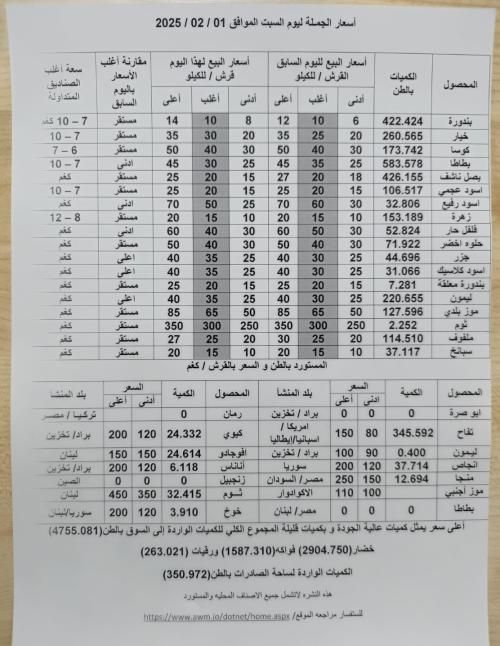 أسعار الجملة ليوم السبت الموافق 01 / 02 / 2025
المحصول الكميات بالطن أسعار البيع لليوم السابق القرش / للكيلو أسعار البيع لهذا اليوم قرش / للكيلو مقارنة أغلب الأسعار باليوم السابق سعة أغلب الصناديق المتداولة
أدنى أغلب أعلى أدنى أغلب أعلى
بندورة 422.424 6 10 12 8 10 14 مستقر 7 – 10 كغم
خيار 260.565 20 25 35 20 30 35 مستقر 7 – 10
كوسا 173.742 30 40 50 30 40 50 مستقر 6 – 7
بطاطا 583.578 25 35 45 25 30 45 ادنى 7 – 10
بصل ناشف 426.155 18 20 27 15 20 25 مستقر كغم
اسود عجمي 106.517 15 20 25 15 20 25 مستقر 7 – 10
اسود رفيع 32.806 30 60 70 25 50 70 ادنى كغم
زهرة 153.189 10 15 20 10 15 20 مستقر 8 – 12
فلفل حار 52.824 30 50 60 30 40 60 ادنى كغم
حلوه اخضر 71.922 30 40 50 30 40 50 مستقر كغم
جزر 44.696 25 30 40 25 35 40 اعلى كغم
اسود كلاسيك 31.066 25 30 40 25 35 40 اعلى كغم
بندورة معلقة 7.281 15 20 25 15 20 25 مستقر كغم
ليمون 220.655 25 30 40 25 35 40 اعلى كغم
موز بلدي 127.596 50 65 85 50 65 85 مستقر كغم
ثوم 2.252 250 300 350 250 300 350 مستقر كغم
ملفوف 114.510 20 25 30 20 25 27 مستقر كغم
سبانخ 37.117 10 15 20 10 15 20 مستقر كغم
المستورد بالطن و السعر بالقرش / كغم
المحصول الكمية السعر بلد المنشأ المحصول الكمية السعر بلد المنشأ
أدنى أعلى أدنى أعلى
ابو صرة 0 0 0 براد / تخزين رمان 0 تركيا / مصر
تفاح 345.592 80 150 امريكا / اسبانيا/إيطاليا كيوي 24.332 120 200 براد/ تخزين
ليمون 0.400 90 100 براد / تخزين افوجادو 24.614 150 150 لبنان
انجاص 37.714 120 200 سوريا أناناس 6.118 120 200 براد/ تخزين
منجا 12.694 150 250 مصر/ السودان زنجبيل 0 0 0 الصين
موز أجنبي 100 110 الاكوادوار ثوم 32.415 350 450 لبنان
بطاطا 0 0 0 مصر/ لبنان خوخ 3.910 120 200 سوريا/لبنان
أعلى سعر يمثل كميات عالية الجودة و بكميات قليلة المجموع الكلي للكميات الواردة إلى السوق بالطن(4755.081)
خضار(2904.750) فواكه(1587.310) ورقيات (263.021)
الكميات الواردة لساحة الصادرات بالطن(350.972)
هذه النشره لاتشمل جميع الاصناف المحليه والمستورد
للستفسار مراجعه الموقع/ https://www.awm.jo/dotnet/home.aspx